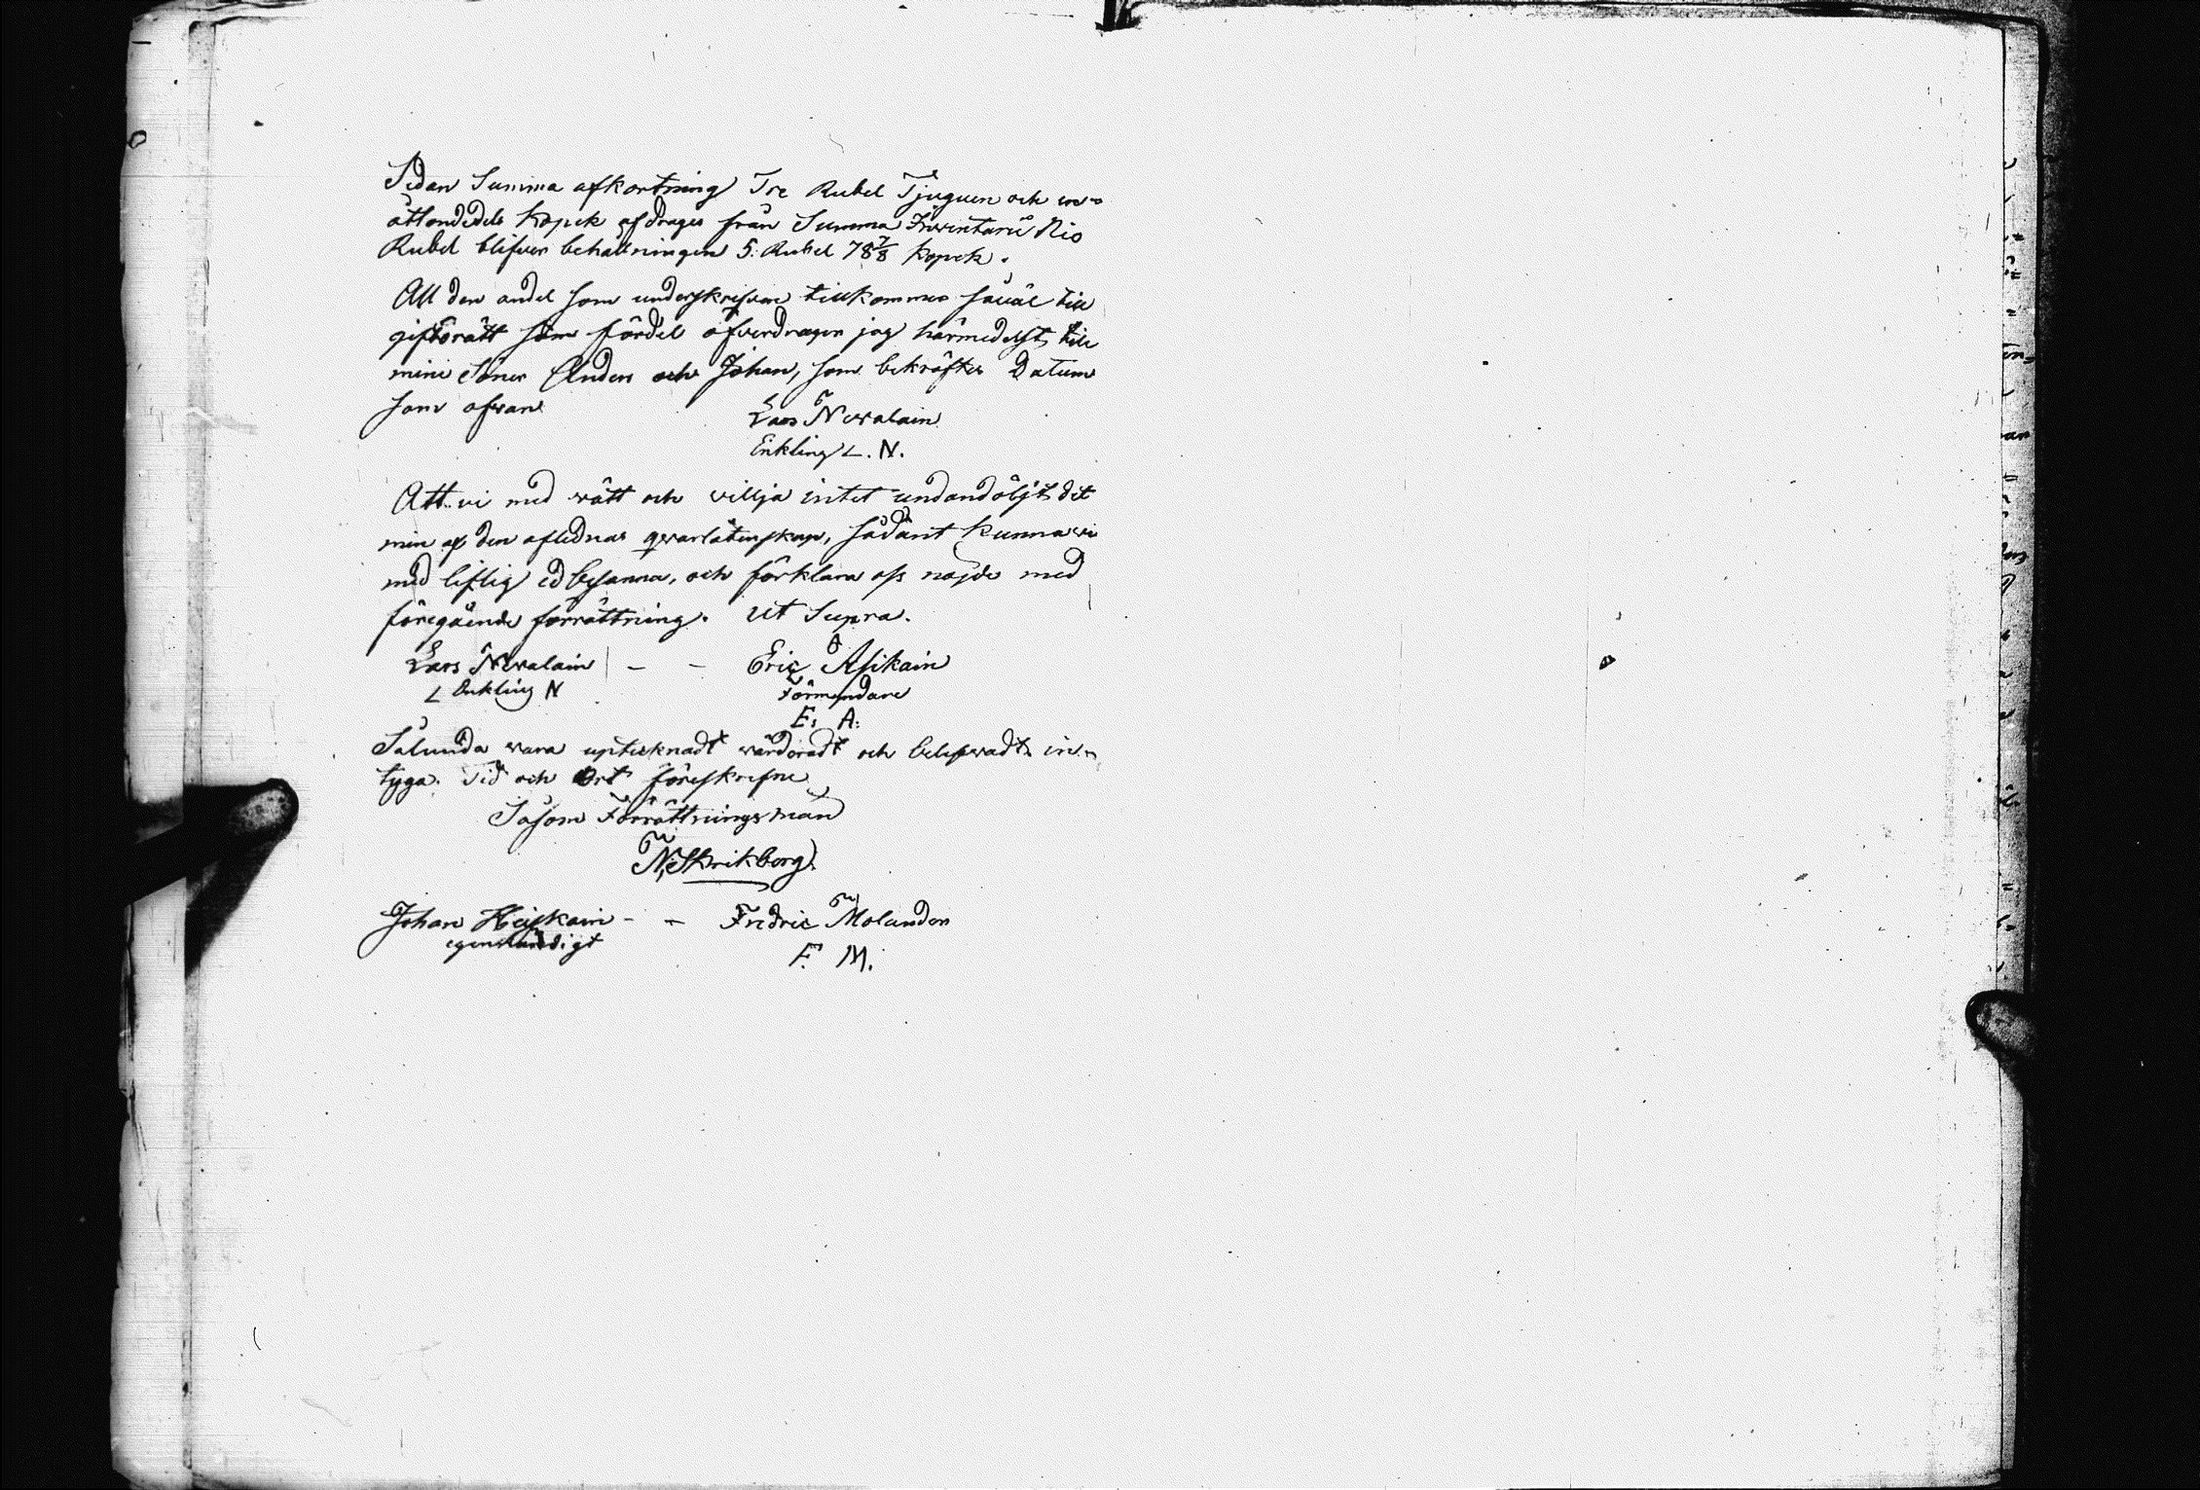 Sedan Summa afkortning Tre Rubel Tjuguen och en
åttondedels kopek afdrages från Summa Inventarii Nio
Rubel blifver behållningen 5. Rubel 78 7/8 kopek.
All den andel som underskrifven tillkommer såväl till
giftorätt som fördel öfverdrager jag härmedelst till
mine Söner Anders och Johan, som bekräftes Datum
som ofvan
Lars Nevalain
Enkling L. N.
Att vi med vätt och villja intet undandöljt det
min af den aflednas qvarlåtenskap, sådant kunna vi
med liflig ed besanna, och förklara oss nöjde med
föregående förrättning. Ut Supra.
Lars Nevalain - - Eric Asikain
L Enkling N Förmyndare
E. A.
Sålunda vara uptecknadt värderadt och belefvadt in-
tyga. Tid och Ort föreskrefne
Såsom Förrättningsmän
N. Skrikborg
Johan Heiskain - - Fredric Molander
egenhändigt F. M.